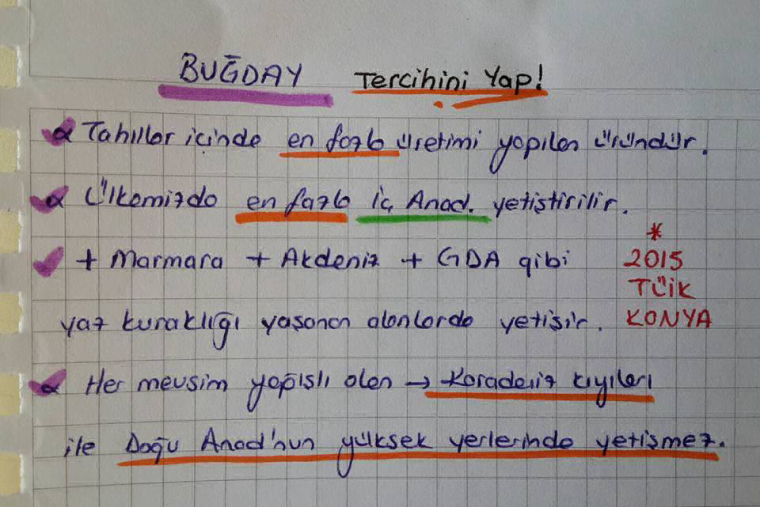 BUĞDAY Tercihini Yap!
α Tahıllar içinde en fazla üretimi yapılan üründür.
α Ülkemizde en fazla İç Anad. yetiştirilir.
+ Marmara + Akdeniz + GDA gibi
yaz kuraklığı yaşanan alanlarda yetişir.
* 2015
TÜİK
KONYA
α Her mevsim yağışlı olan → Karadeniz kıyıları
ile Doğu Anad'nun yüksek yerlerinde yetişmez.